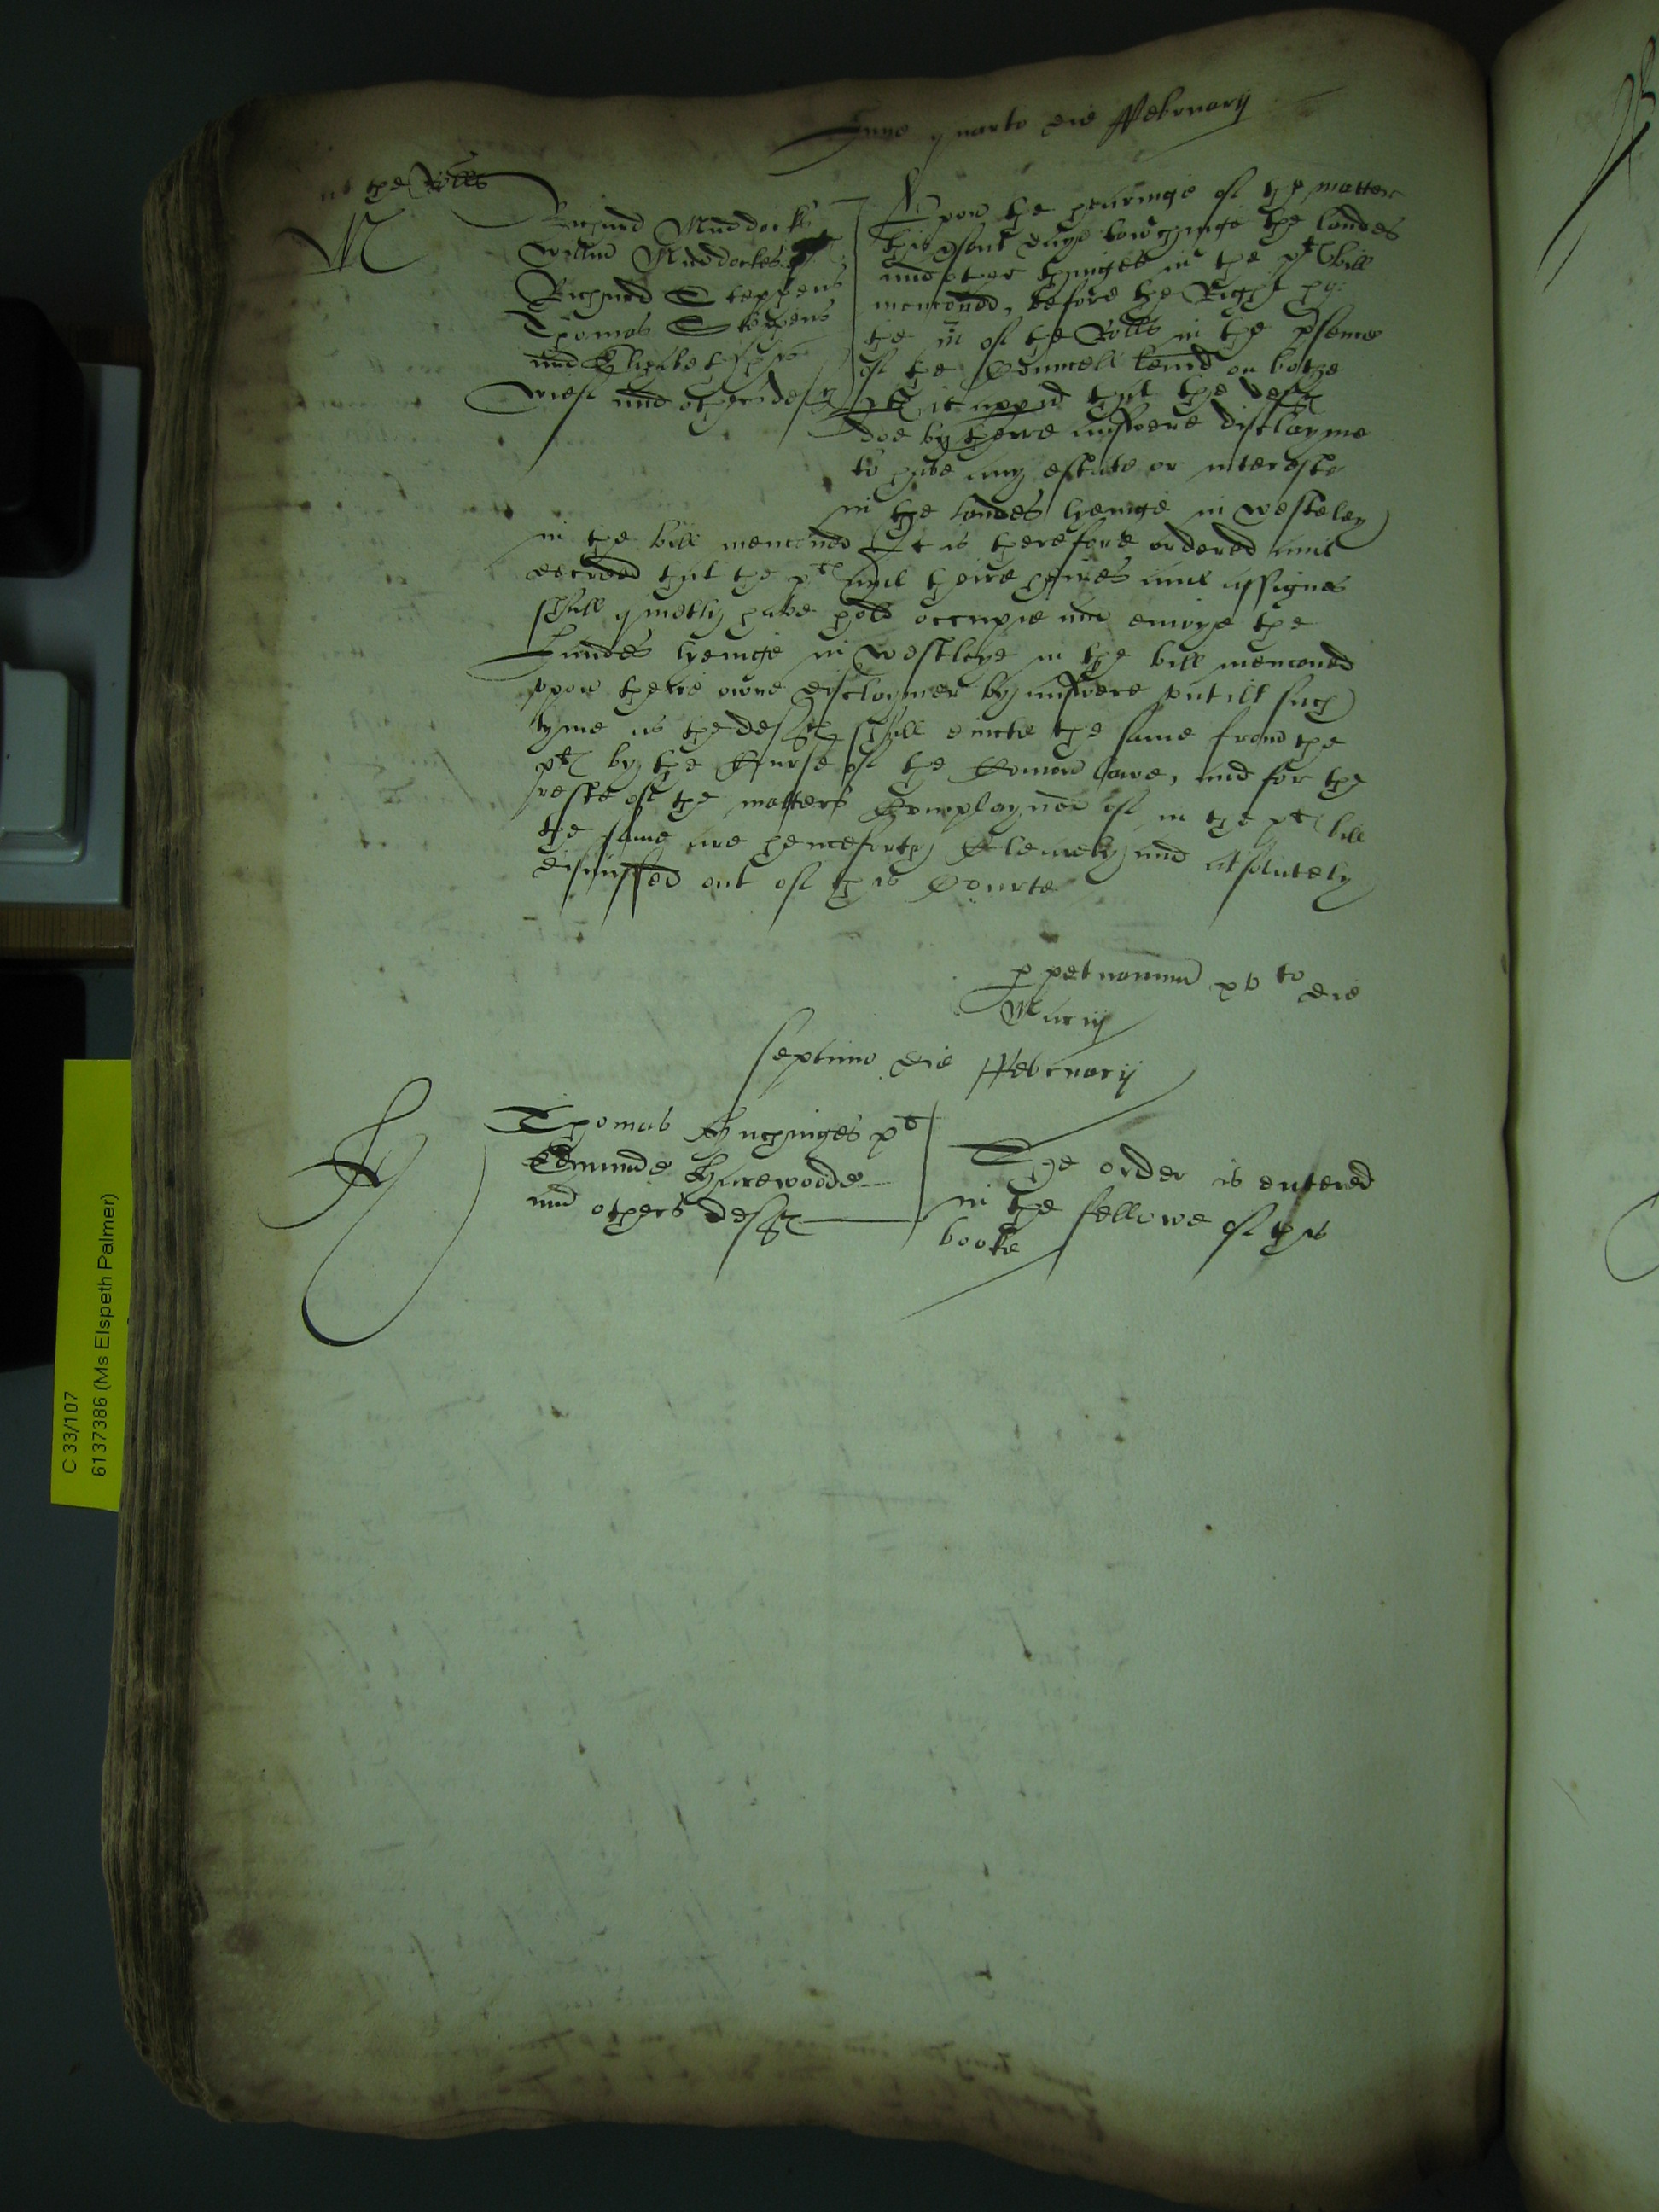 Anno quarto die ffebruarij
at the Rolls
M
Richard Maddocks
Willm Maddockes
Richard Stephens
Thomas Stephens
and Elizabeth his
wief and others deftes
Upon the hearinge of the matter
this psent daye towchinge the landes
and other thinges in the plt bill
menconed, before the Right ho:
the m of the Rolls in the psence
of the Councell learnd on bothe
ptes, it appid that the deftes
doe by theire answere disclayme
to have any estate or intereste
in the landes lyenge in Westeley
in the bill menconed It is therefore ordered and
decreed that the plt and theire heires and assignes
shall quietly have hold occupie and enioye the
Landes lyenge in Westleye in the bill menconed
vpon theire owne disclaymer by answere vntill such
tyme as the deftes shall evicte the same from the
plt by the Course of the Comon lawe, and for the
reste of the matters Complayned of in the plt bill
the same are henceforth Clearely and absolutely
dismissed out of this Courte
p petnamum xvto die
Maij
Septimo die ffebruarij
H
Thomas Huchinges plt
Edmunde Harewoodde
and others deftes
The order is entered
in the fellowe of this
booke
C 33/107
6137386 (Ms Elspeth Palmer)